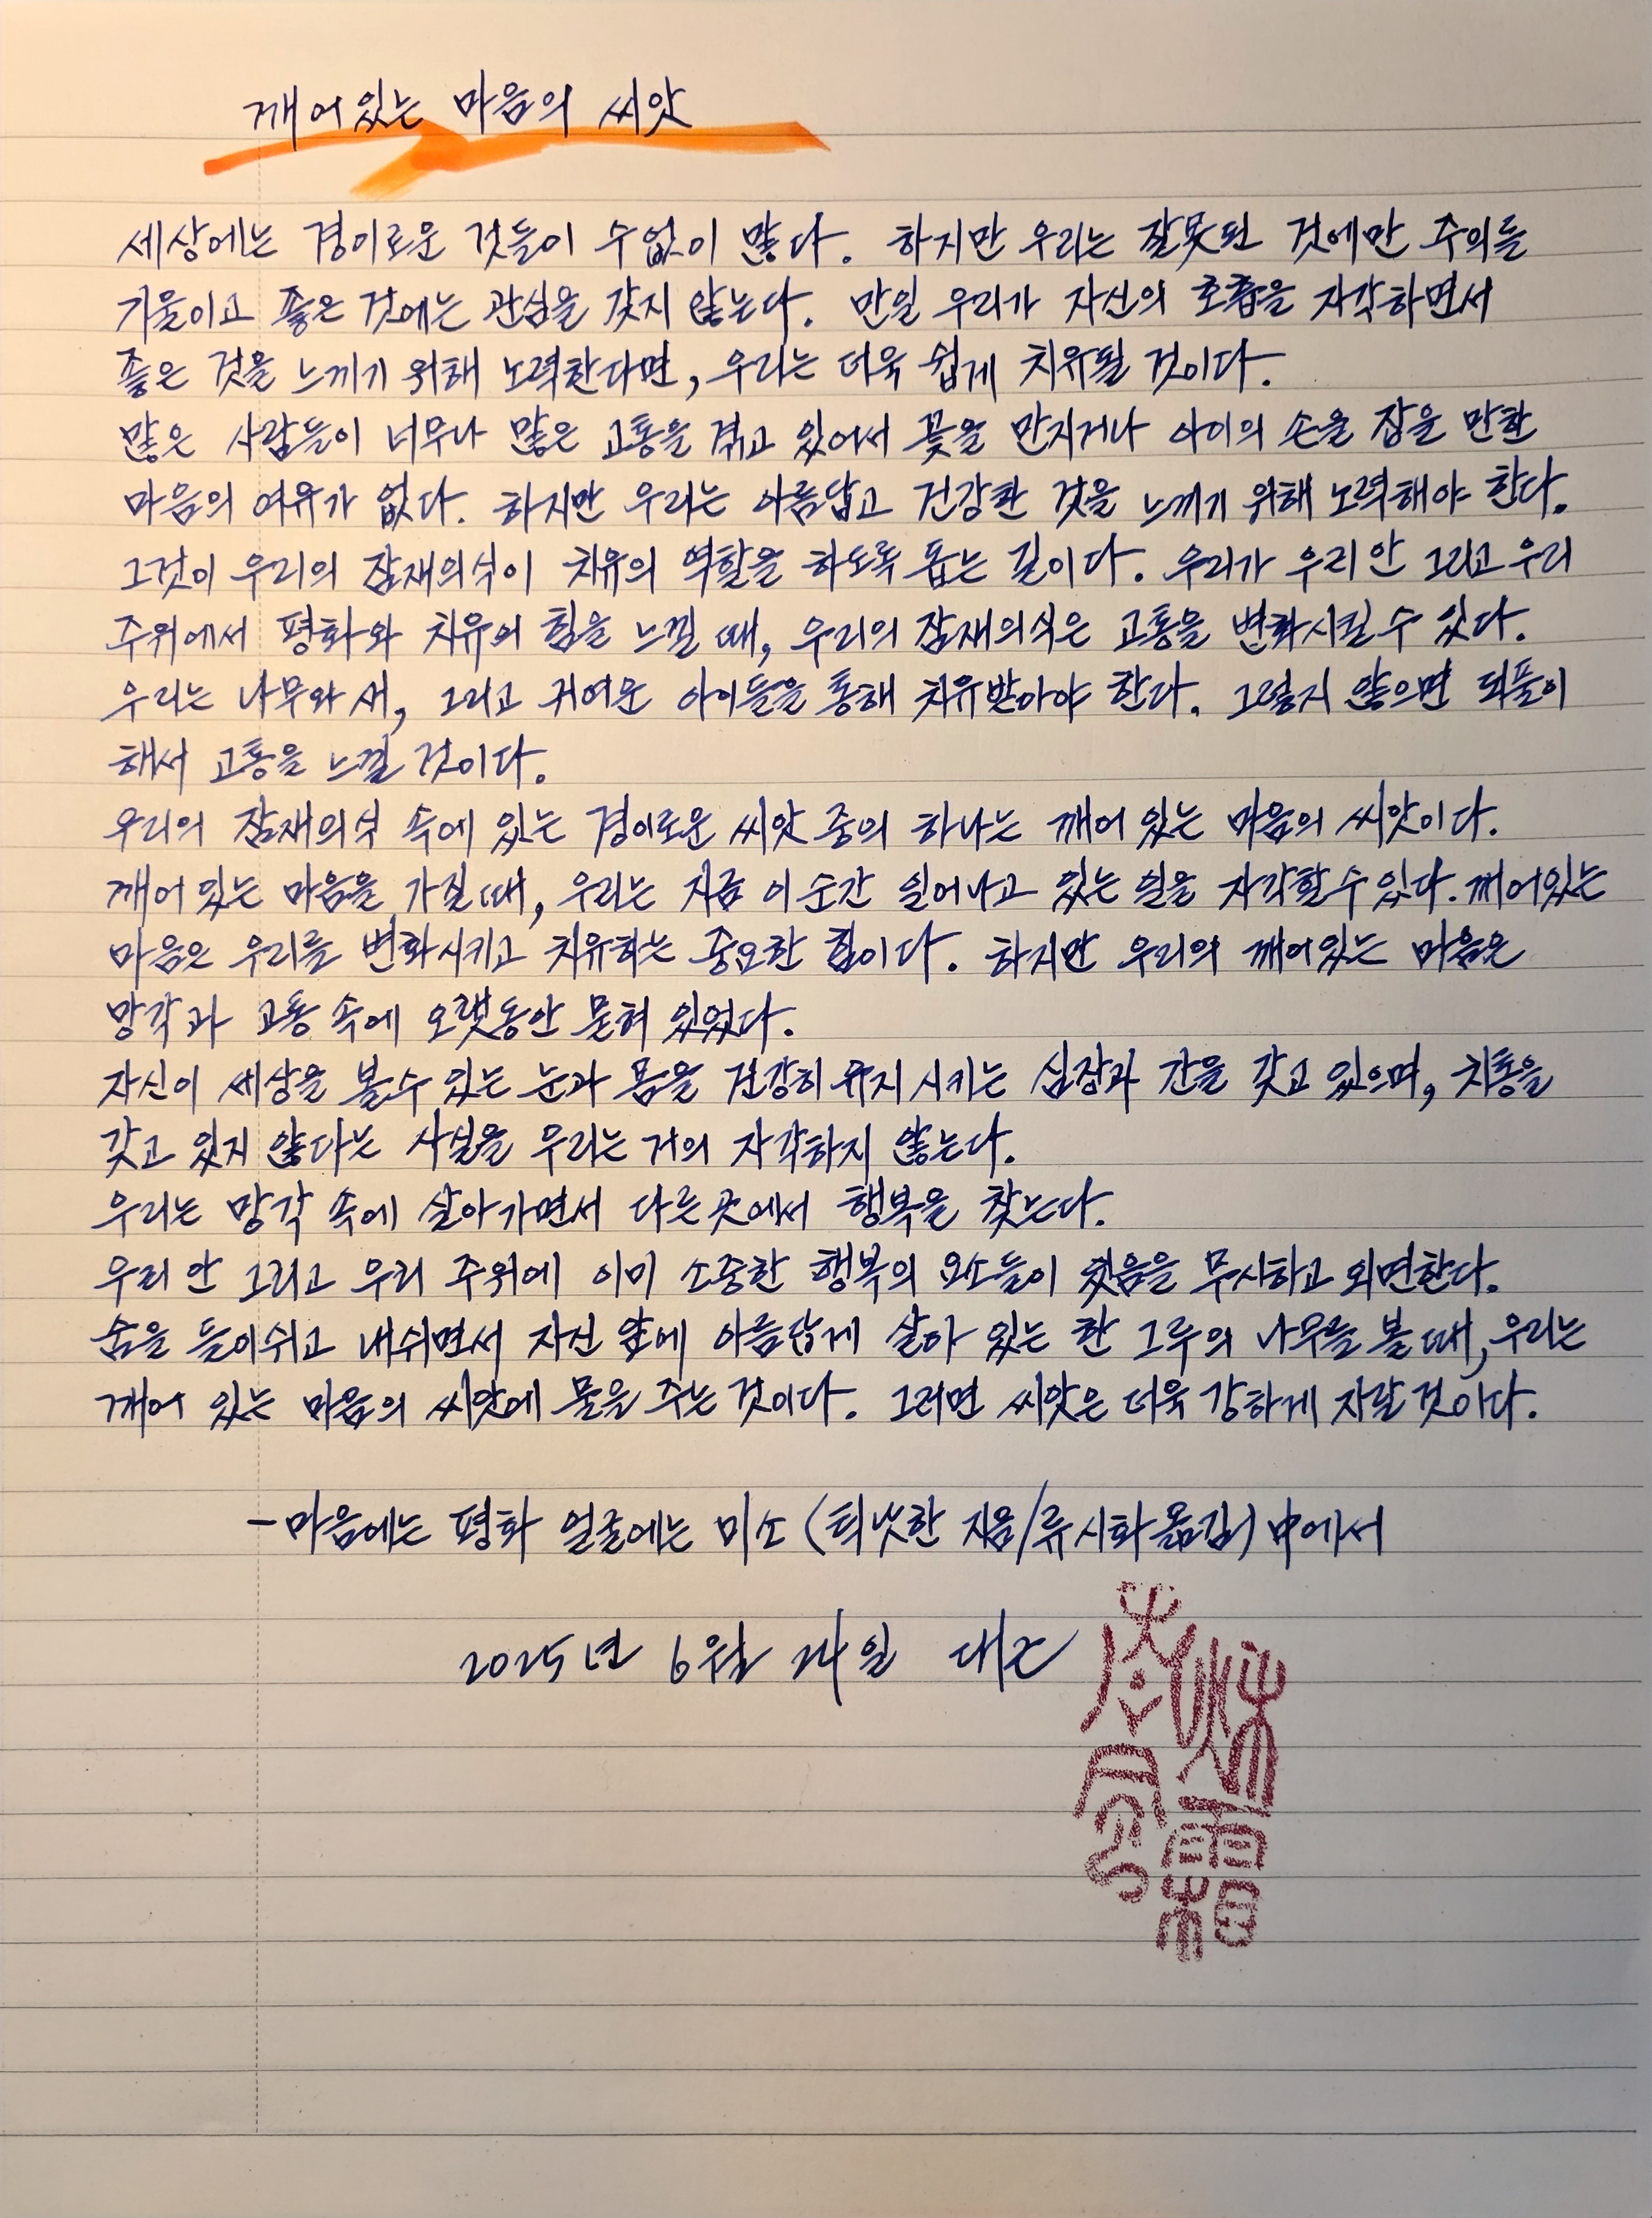 깨어있는 마음의 씨앗
세상에는 경이로운 것들이 수없이 많다. 하지만 우리는 잘못된 것에만 주의를
기울이고 좋은 것에는 관심을 갖지 않는다. 만일 우리가 자신의 호흡을 자각하면서
좋은 것을 느끼기 위해 노력한다면, 우리는 더욱 쉽게 치유될 것이다.
많은 사람들이 너무나 많은 고통을 겪고 있어서 꽃을 만지거나 아이의 손을 잡을 만한
마음의 여유가 없다. 하지만 우리는 아름답고 건강한 것을 느끼기 위해 노력해야 한다.
그것이 우리의 잠재의식이 치유의 역할을 하도록 돕는 길이다. 우리가 우리 안 그리고 우리
주위에서 평화와 치유의 힘을 느낄 때, 우리의 잠재의식은 고통을 변화시킬 수 있다.
우리는 나무와 새, 그리고 귀여운 아이들을 통해 치유받아야 한다. 그렇지 않으면 되풀이
해서 고통을 느낄 것이다.
우리의 잠재의식 속에 있는 경이로운 씨앗 중의 하나는 깨어 있는 마음의 씨앗이다.
깨어 있는 마음을 가질 때, 우리는 지금 이 순간 일어나고 있는 일을 자각할 수 있다. 깨어있는
마음은 우리를 변화시키고 치유하는 중요한 힘이다. 하지만 우리의 깨어있는 마음은
망각과 고통 속에 오랫동안 묻혀 있었다.
자신이 세상을 볼 수 있는 눈과 몸을 건강히 유지시키는 심장과 간을 갖고 있으며, 치통을
갖고 있지 않다는 사실을 우리는 거의 자각하지 않는다.
우리는 망각 속에 살아가면서 다른 곳에서 행복을 찾는다.
우리 안 그리고 우리 주위에 이미 소중한 행복의 요소들이 있음을 무시하고 외면한다.
숨을 들이쉬고 내쉬면서 자신 앞에 아름답게 살아 있는 한 그루의 나무를 볼 때, 우리는
깨어 있는 마음의 씨앗에 물을 주는 것이다. 그러면 씨앗은 더욱 강하게 자랄 것이다.
-마음에는 평화 얼굴에는 미소 (틱낫한 지음/류시화 옮김) 中에서
2025년 6월 24일